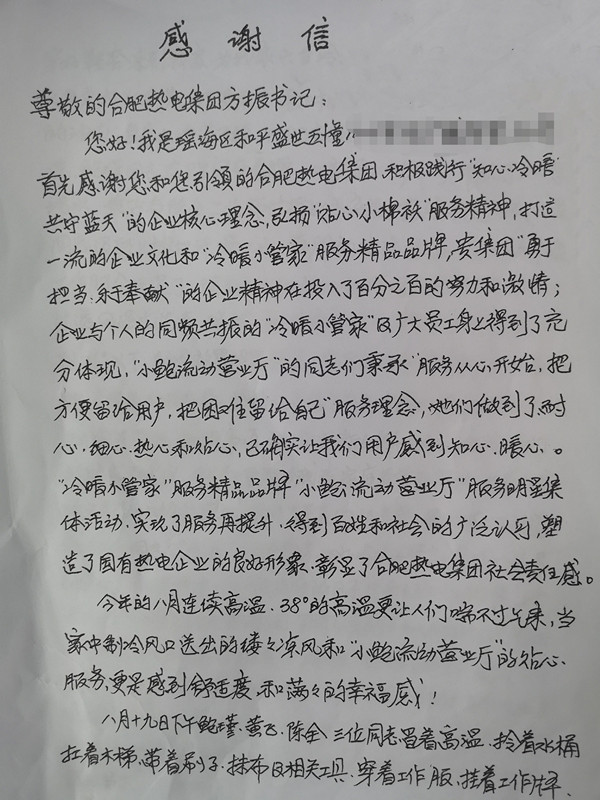 感谢信
尊敬的合肥热电集团方振书记：
您好！我是瑶海区和平盛世五幢
首先感谢您和您引领的合肥热电集团、积极践行“知心冷暖
共守蓝天”的企业核心理念，弘扬“贴心小棉袄”服务精神，打造
一流的企业文化和“冷暖小管家”服务精品品牌，贵集团“勇于
担当、乐于奉献”的企业精神在投入了百分之百的努力和激情；
企业与个人的同频共振的“冷暖小管家”及广大员工身上得到了充
分体现，“小鲍流动营业厅”的同志们秉承“服务从心开始，把
方便留给用户，把困难留给自己”服务理念，她们做到了耐
心、细心、热心和贴心，已确实让我们用户感到知心、暖心。
“冷暖小管家”服务精品品牌“小鲍流动营业厅”服务明星集
体活动、实现了服务再提升、得到百姓和社会的广泛认可，塑
造了国有热电企业的良好形象、彰显了合肥热电集团社会责任感。
今年的八月连续高温、38°的高温更让人们喘不过气来，当
家中制冷风口送出的缕々凉风和“小鲍流动营业厅”的贴心
服务，更是感到舒适度、和满々的幸福感！
八月十九日下午鲍瑾、黄飞、陈全三位同志冒着高温、拎着水桶
扛着木梯、带着刷子、抹布及相关工具、穿着工作服、挂着工作牌、